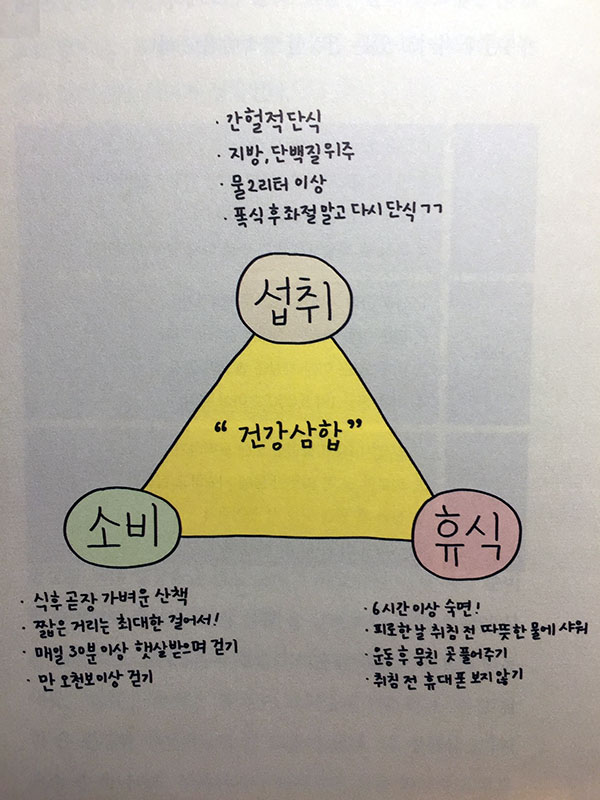 · 간헐적 단식
· 지방, 단백질 위주
· 물 2리터 이상
· 폭식 후 좌절 말고 다시 단식 ㄱㄱ
섭취
“ 건강삼합 ”
소비
휴식
· 식후 곧장 가벼운 산책
· 짧은 거리는 최대한 걸어서!
· 매일 30분 이상 햇살받으며 걷기
· 만 오천보 이상 걷기
· 6시간 이상 숙면!
· 피로한 날 취침 전 따뜻한 물에 샤워
· 운동 후 뭉친 곳 풀어주기
· 취침 전 휴대폰 보지 않기